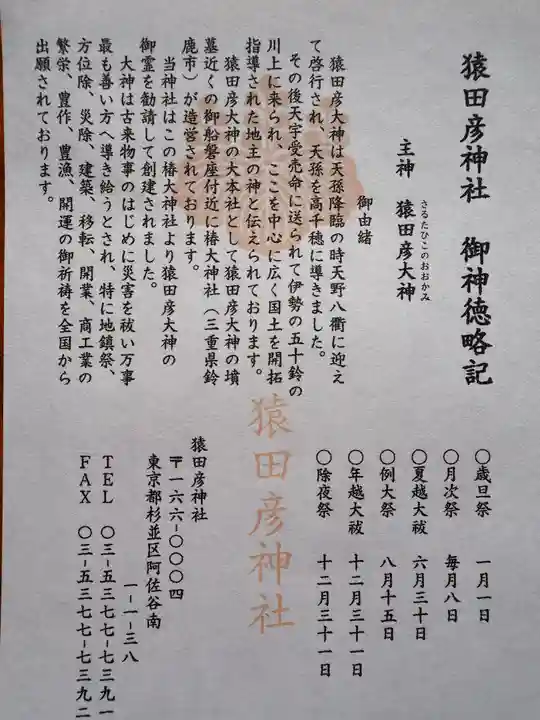 猿田彦神社　御神徳略記
主神　猿田彦大神
さるたひこのおおかみ
御由緒
猿田彦大神は天孫降臨の時天野八衢に迎え
て啓行され、天孫を高千穂に導きました。
その後天宇愛売命に送られて伊勢の五十鈴の
川上に来られ、ここを中心に広く国土を開拓
指導された地主の神と伝えられております。
猿田彦大神の大本社として猿田彦大神の墳
墓近くの御船磐座付近に椿大神社（三重県鈴
鹿市）が造営されております。
当神社はこの椿大神社より猿田彦大神の
御霊を勧請して創建されました。
大神は古来物事のはじめに災害を祓い万事
最も善い方へ導き給うとされ、特に地鎮祭、
方位除、災除、建築、移転、開業、商工業の
繁栄、豊作、豊漁、開運の御祈祷を全国から
出願されております。
〇歳旦祭　一月一日
〇月次祭　毎月八日
〇夏越大祓　六月三十日
〇例大祭　八月十五日
〇年越大祓　十二月三十一日
〇除夜祭　十二月三十一日
猿田彦神社
猿田彦神社
〒一六六-〇〇〇四
東京都杉並区阿佐谷南
一-一-三八
ＴＥＬ　〇三-五三七七-七三九一
ＦＡＸ　〇三-五三七七-七三九二